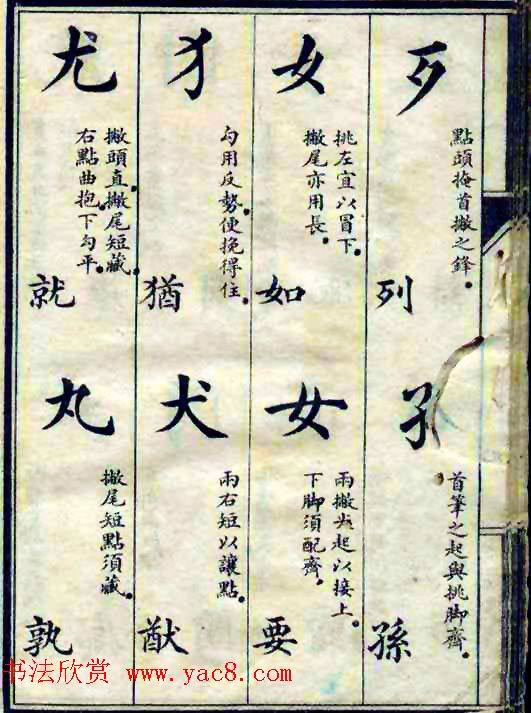 歹
點頭掩首撇之鋒。
列
孑
首筆之起與挑脚齊。
孫
女
挑左宜以冒下。
撇尾亦用長。
如
女
兩撇尖起以接上。
下脚須配齊。
要
犭
勾用反勢。便挽得住。
猶
犬
兩右短以讓點。
猷
尤
撇頭直。撇尾短藏。
右點曲抱。下勾平。
就
丸
撇尾短。點須藏。
孰
书法欣赏 www.yac8.com